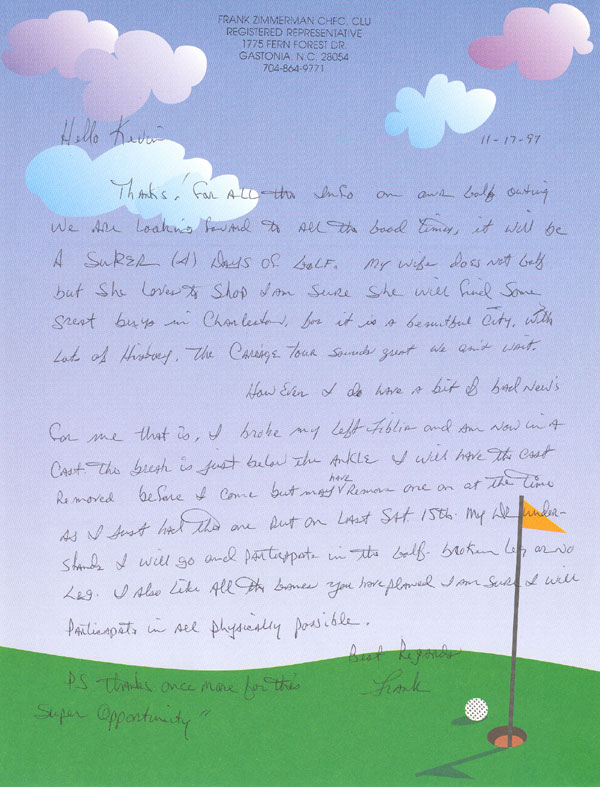 FRANK ZIMMERMAN CHFC, CLU
REGISTERED REPRESENTATIVE
1775 FERN FOREST DR.
GASTONIA, N.C. 28054
704-864-9771
Hello Kevin
11-17-97
Thanks! for ALL the Info on our Golf outing
We Are Looking forward to all the Good Times, it will be
A SUPER (4) DAYS OF GOLF. My wife does not Golf
but She Loves to Shop I am Sure She will find Some
great buys in Charleston, for it is a beautiful City, with
Lots of History. The Carriage Tour sounds great we can't wait.
HowEver I do have a bit of bad News
for me that is, I broke my Left and am Now in A
Cast. the break is just below the Ankle I will have the Cast
Removed before I come but may have Remove one on at the Time
As I Just had this one Put on Last Sat. 15th. My DR under-
stands I will go and Participate in the Golf. broken Leg or No
Leg. I also Like All the you have planned I am Sure I will
Participate in all physically possible.
Best Regards
Frank
P.S. Thanks once more for this
Super Opportunity"